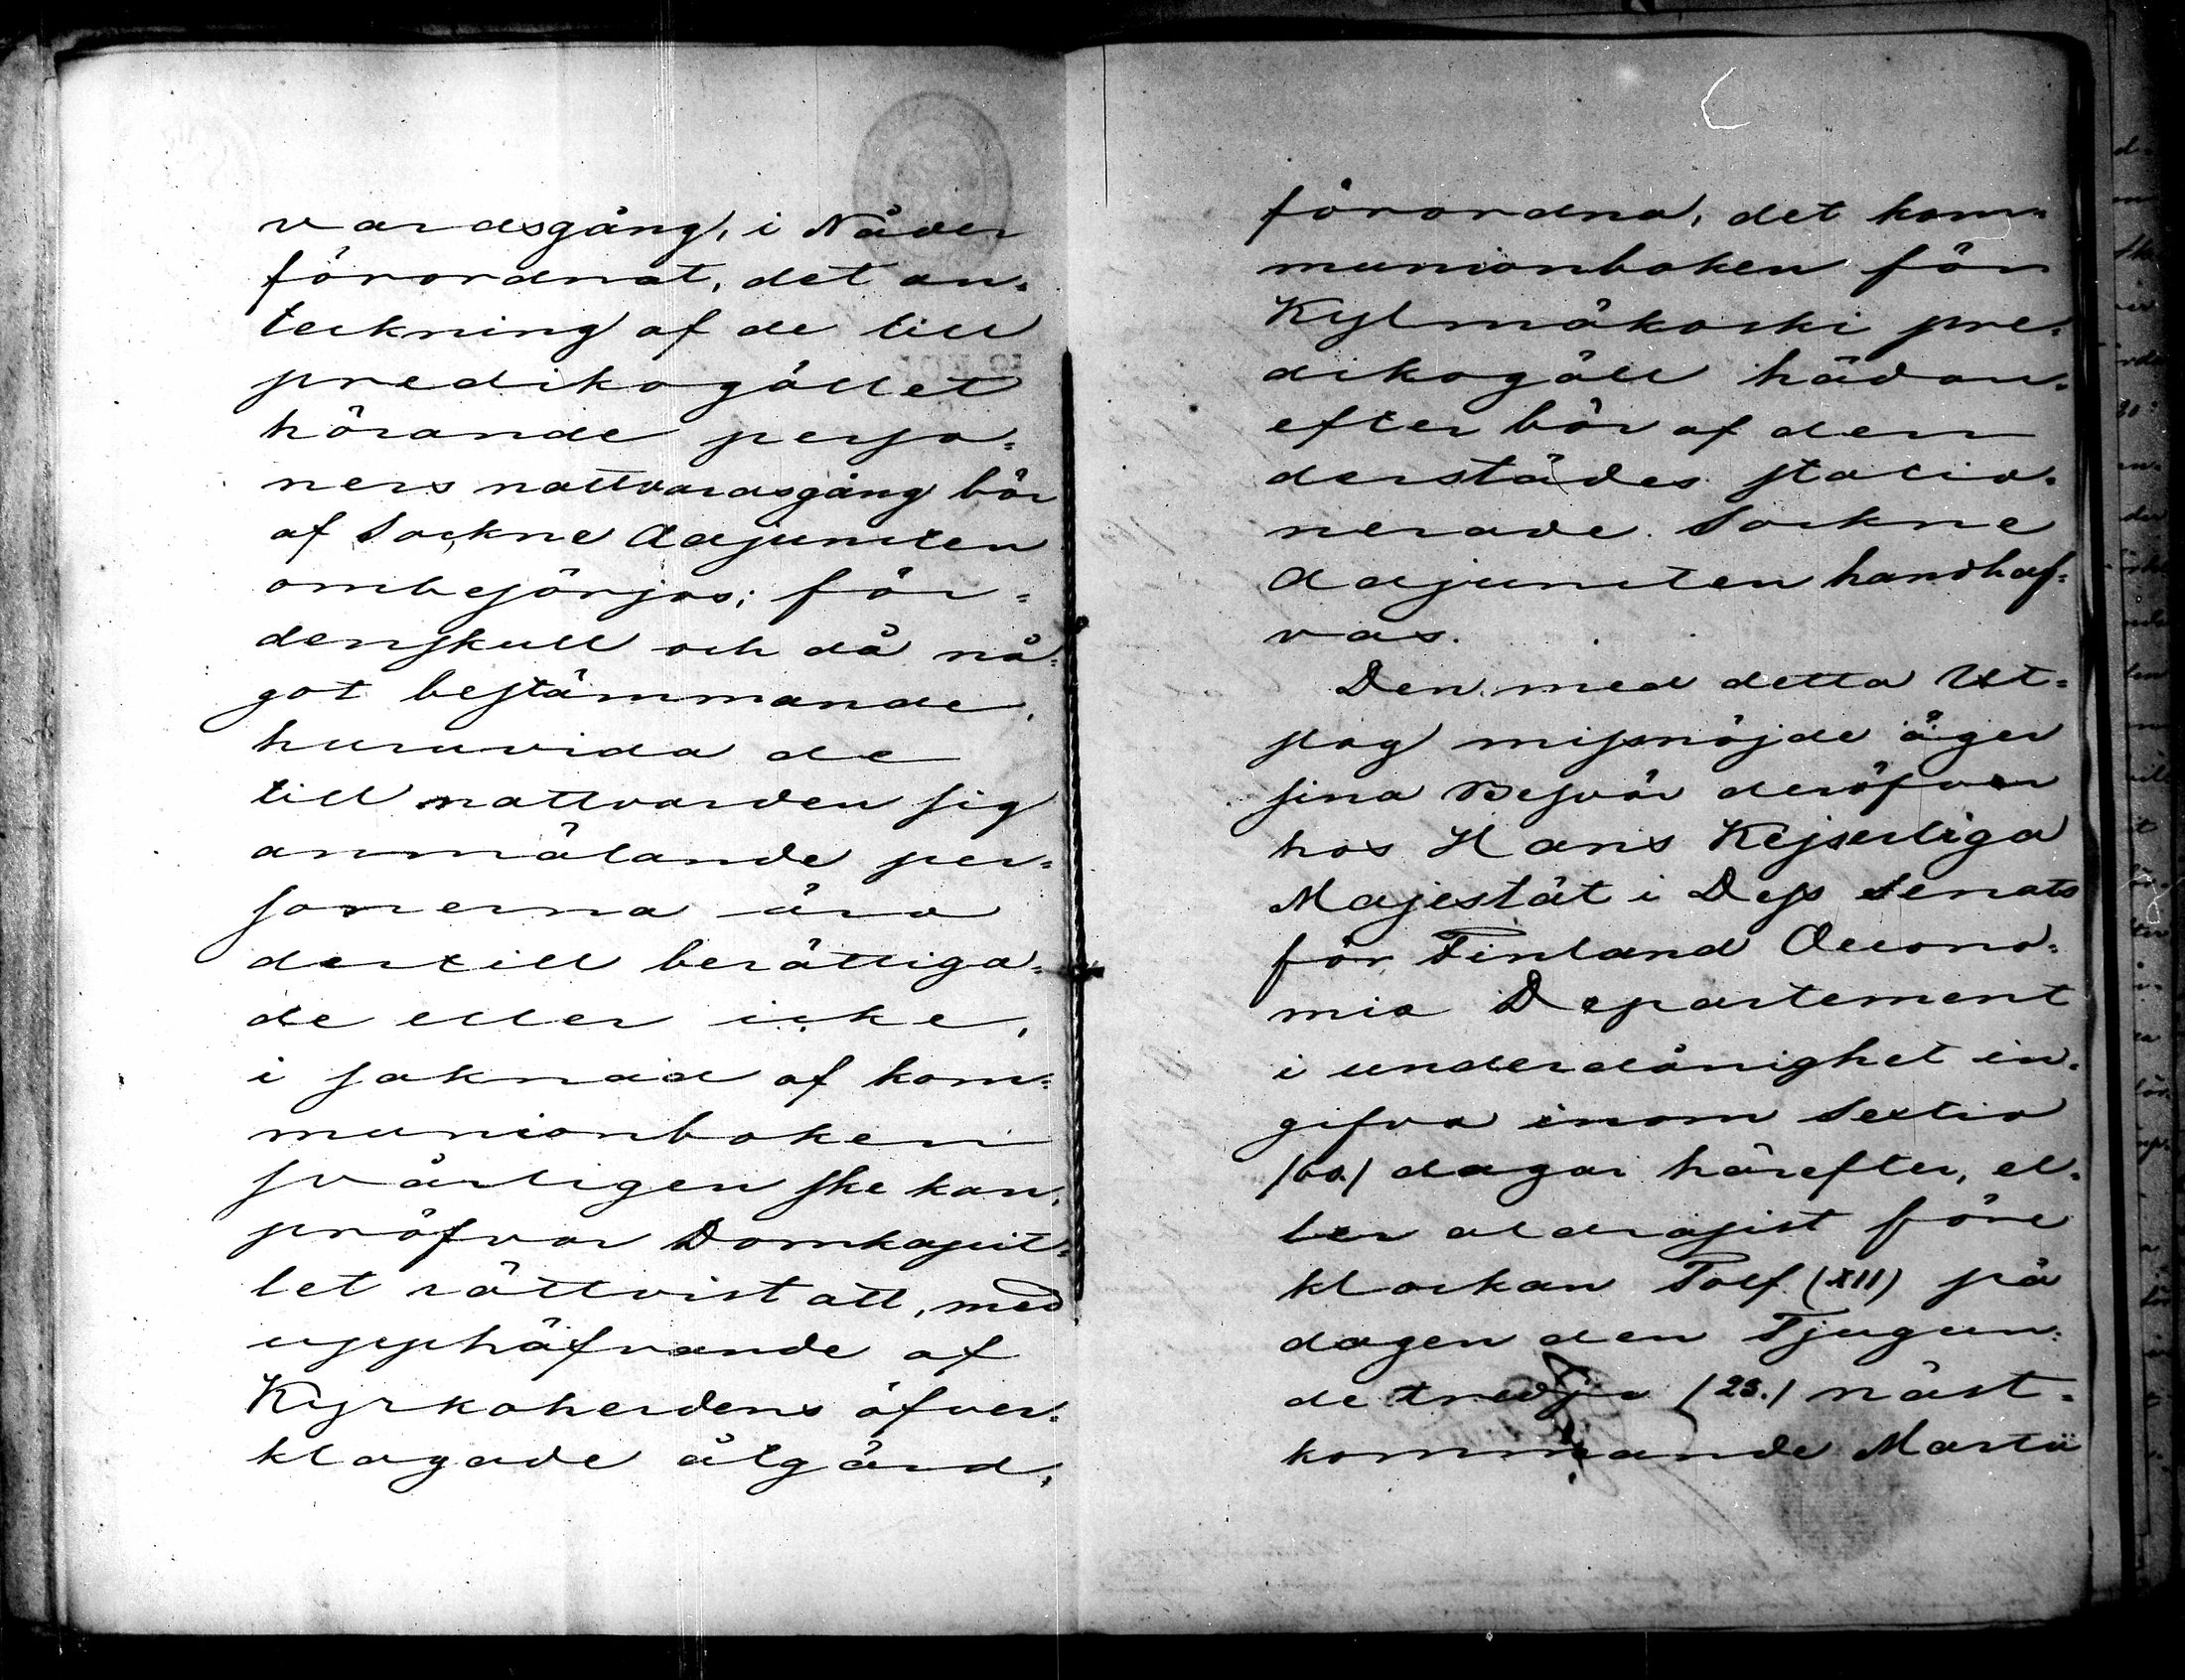 vardsgång, i Nåder
förordnat, det an=
teckning af de till
predikogället
hörande perso=
ners nattvardsgång bör
af Sockne Adjuncten
ombesörjas; för=
denskull och då nå=
got bestämmande,
huruvida de
till nattvarden sig
anmälande per=
sonerna äro
dertill berättiga=
de eller icke,
i saknad af kom=
munionboken
svårligen ske kan,
pröfvar Domkapit=
let rättvist att, med
upphäfvande af
Kyrkoherdens öfver=
klagade åtgärd,
förordna, det kom=
munionboken för
Kylmäkoski pre=
dikogäll hädan=
efter bör af den
derstädes statio=
nerade Sockne
Adjuncten handhaf=
vas.
Den med detta Ut=
slag missnöjde äger
sina Besvär deröfver
hos Hans Kejserliga
Majestät i Dess Senats
för Finland Oecono=
mie Departement
i underdånighet in=
gifva inom Sextio
/60./ dagar härefter, el=
ler aldrasist före
klockan Tolf (XII) på
dagen den Tjugon=
de tredje /23./ näst=
kommande Martii